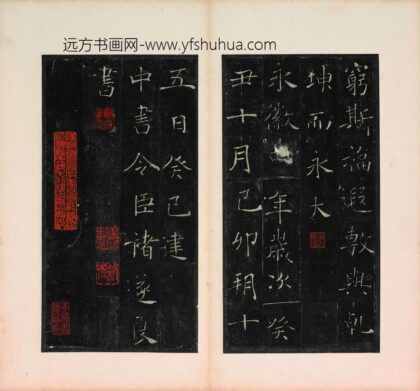 远方书画网-www.yfshuhua.com
窮斯福遐敷與乾
坤而永大
永徽年歲次癸
丑十月己卯朔十
五日癸巳建
中書令臣褚遂良
書